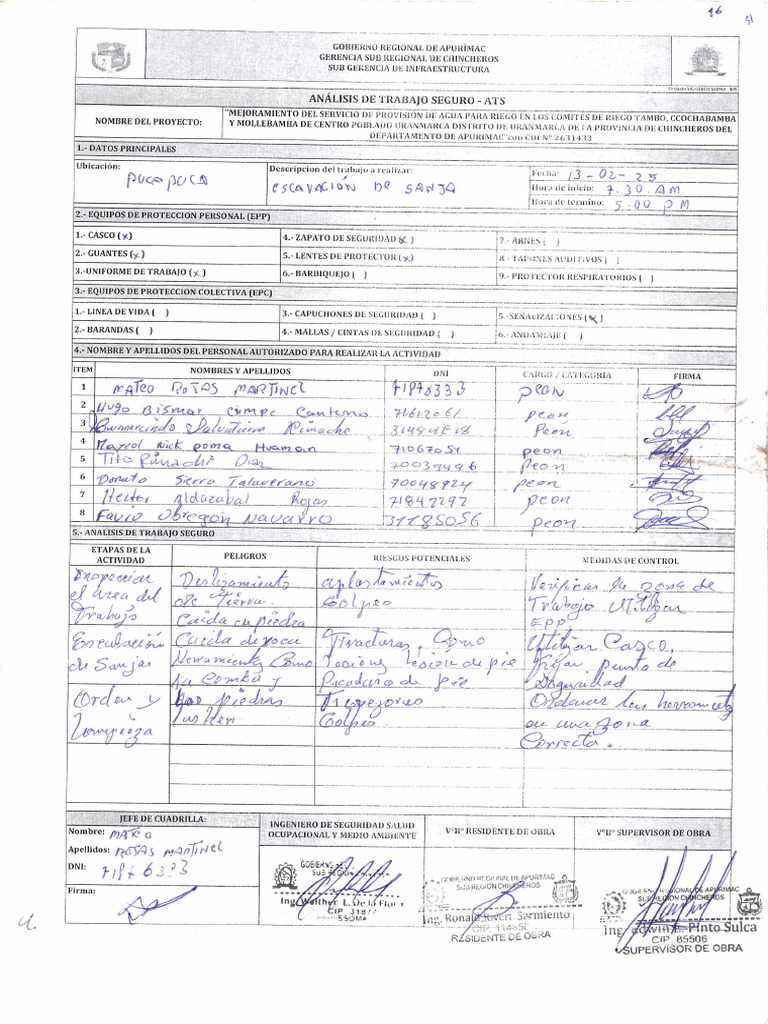 96
51
GOBIERNO REGIONAL DE APURÍMAC
GERENCIA SUB REGIONAL DE CHINCHEROS
SUB GERENCIA DE INFRAESTRUCTURA
ANÁLISIS DE TRABAJO SEGURO - ATS
NOMBRE DEL PROYECTO:
"MEJORAMIENTO DEL SERVICIO DE PROVISIÓN DE AGUA PARA RIEGO EN LOS COMITÉS DE RIEGO TAMBO, CCOCHABAMBA
Y MOLLEBAMBA DE CENTRO POBLADO URANMARCA DISTRITO DE URANMARCA DE LA PROVINCIA DE CHINCHEROS DEL
DEPARTAMENTO DE APURIMAC"con CUI Nº 2631433
1.- DATOS PRINCIPALES
Ubicación: pucapuca
Descripcion del trabajo a realizar: escavación de sanja
Fecha: 13-02-25
Hora de inicio: 7.30.AM
Hora de termino: 5.00 PM
2.- EQUIPOS DE PROTECCION PERSONAL (EPP)
1.- CASCO (x) 4.- ZAPATO DE SEGURIDAD (x) 7.- ARNES ( )
2.- GUANTES (x) 5.- LENTES DE PROTECTOR (x) 8.- TAPONES AUDITIVOS ( )
3.-UNIFORME DE TRABAJO (x) 6.- BARBIQUEJO ( ) 9.- PROTECTOR RESPIRATORIOS ( )
3.- EQUIPOS DE PROTECCION COLECTIVA (EPC)
1.- LINEA DE VIDA ( ) 3.- CAPUCHONES DE SEGURIDAD ( ) 5.-SEÑALIZACIONES (x)
2.- BARANDAS ( ) 4.- MALLAS / CINTAS DE SEGURIDAD ( ) 6.- ANDAMIAJE ( )
4.- NOMBRE Y APELLIDOS DEL PERSONAL AUTORIZADO PARA REALIZAR LA ACTIVIDAD
ITEM NOMBRES Y APELLIDOS DNI CARGO / CATEGORIA FIRMA
1 MATEO ROJAS MARTINEZ 71976333 peon
2 Hugo Bismar 71612061 peon
3 Salvatierra Rimache Peon
4 Maycol Nick poma Huaman 71067051 peon
5 Tito Rimachi Diaz 70039486 Peon
6 Donato Sierra Talaverano 70048924 peon
7 Hector Aldazabal Rojas 71842297 peon
8 Favio Obregon Navarro 31185056 peon
5.- ANALISIS DE TRABAJO SEGURO
ETAPAS DE LA ACTIVIDAD PELIGROS RIESGOS POTENCIALES MEDIDAS DE CONTROL
Inspeccion Deslizamiento aplastamientos Verificar la zona de
el area del de Tierra. Golpeo Trabajo Utilizar
Trabajo Caida de piedra EPP
Escabación Caida de roca Fracturas, Como Utilizar Casco,
de Sanjas Herramientas Como lesiones lesion de pie fijar punto de
la Comba y Picadura de pie Seguridad
Orden y piedras Tropezones Ordenar las herramientas
Limpieza Golpes en una zona
Correcta.
JEFE DE CUADRILLA:
Nombre: MATEO
Apellidos: ROJAS MARTINEZ
DNI: 71976333
Firma:
INGENIERO DE SEGURIDAD SALUD
OCUPACIONAL Y MEDIO AMBIENTE
Ing. Walther L. De la Flor
CIP. 31877
SSOMA
VºBº RESIDENTE DE OBRA
GOBIERNO REGIONAL DE APURIMAC
SUB REGION CHINCHEROS
Ing. Ronald Rivera Sarmiento
RESIDENTE DE OBRA
VºBº SUPERVISOR DE OBRA
GOBIERNO REGIONAL DE APURIMAC
SUB REGION CHINCHEROS
Ing. Edwin L. Pinto Sulca
CIP. 85506
SUPERVISOR DE OBRA